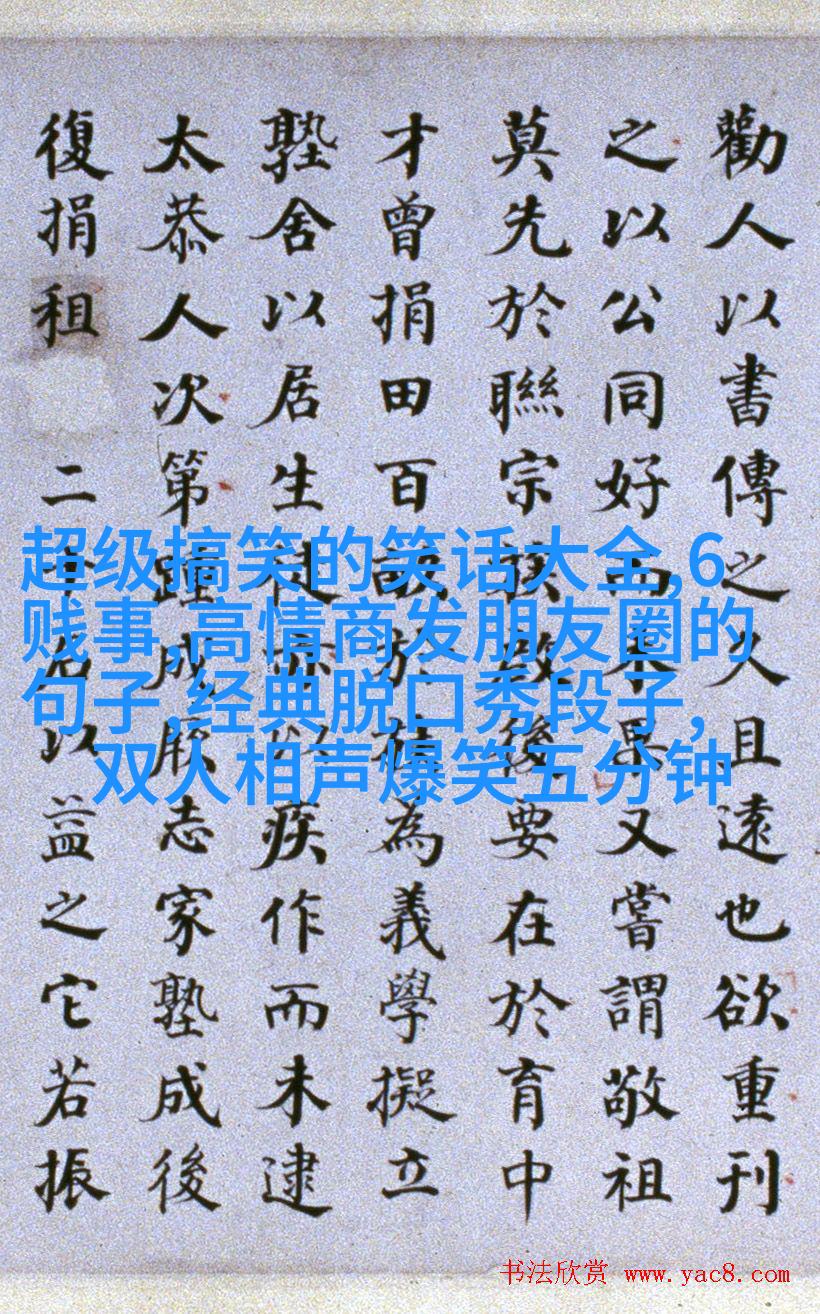 勸人以書傳之久且遠也欲重刊
之以公同好而未果又嘗謂敬祖
莫先於聯宗族啟後要在於育中
才曾捐田百畝於族為義學擬立
塾舍以居生徒亦以疾作而未逮
太恭人次第踵成厥志家塾成後
復捐租二十石以益之它若振
超级搞笑的笑话大全,6
贱事,高情商发朋友圈的
句子,经典脱口秀段子,
双人相声爆笑五分钟
书法欣赏 www.yac8.com